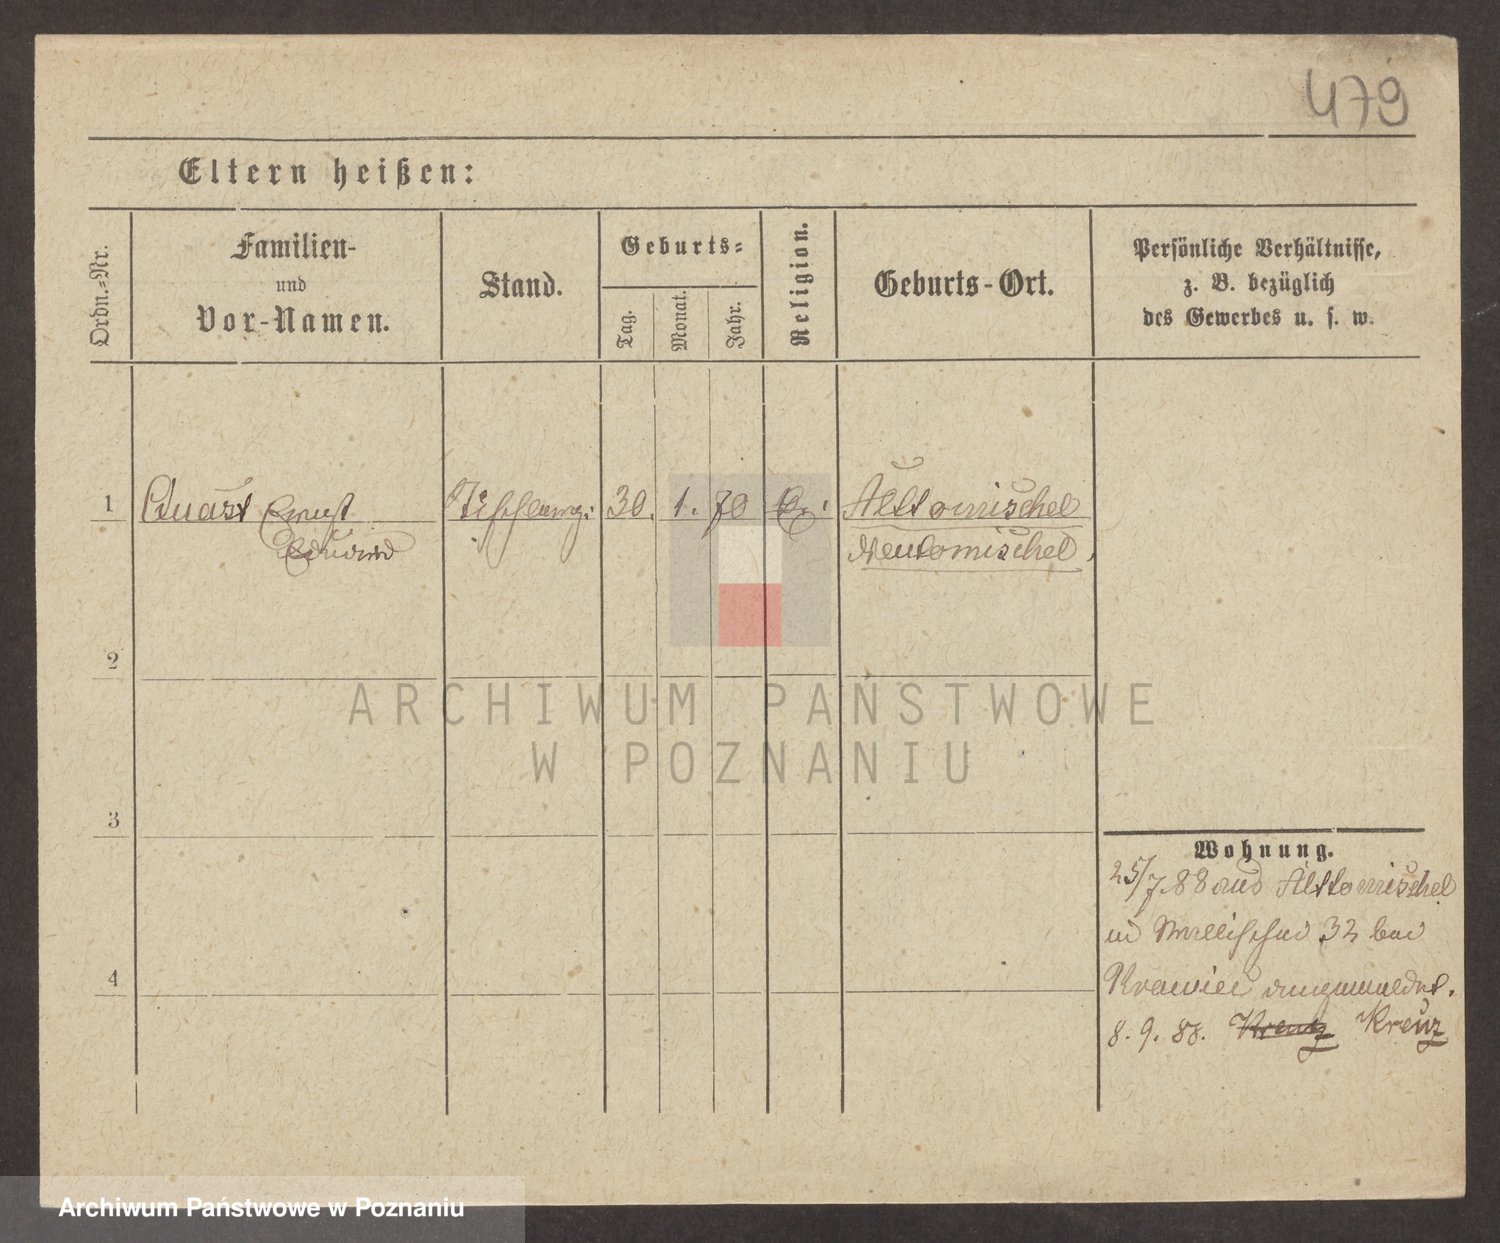 479
Eltern heißen:
Ordn.-Nr.
Familien-
und
Vor-Namen.
Stand.
Geburts-
Tag.
Monat.
Jahr.
Religion.
Geburts-Ort.
Persönliche Verhältnisse,
z. B. bezüglich
des Gewerbes u. s. w.
1 Quast Ernst 30. 1. 70 Alttomischel
Eduard Neutomischel
2
ARCHIWUM PAŃSTWOWE
W POZNANIU
3
Wohnung.
25/7 88 aus Alttomischel
32 bei
Krawiec angemeldet.
4
8. 9. 88. Kreutz Kreuz
Archiwum Państwowe w Poznaniu